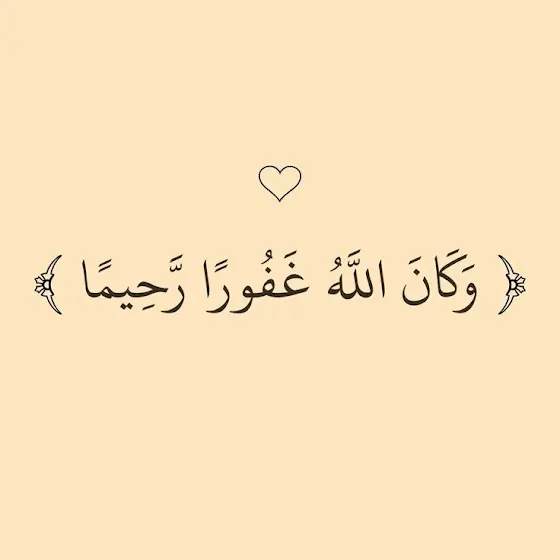 ﴿ وَكَانَ اللَّهُ غَفُورًا رَّحِيمًا ﴾